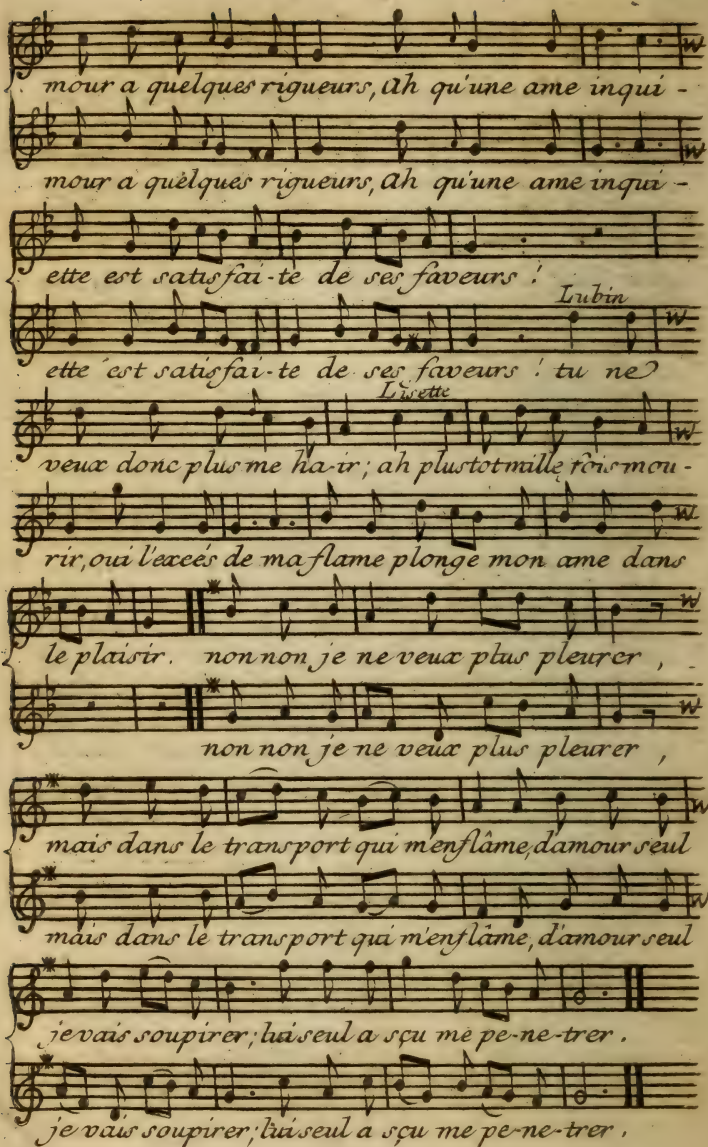 mour a quelques rigueurs, Ah qu'une ame inqui -
mour a quelques rigueurs, Ah qu'une ame inqui -
ette est satisfai-te de ses faveurs !
Lubin
ette est satisfai-te de ses faveurs ! tu ne
Lisette
veux donc plus me ha-ir ; ah plustot mille fois mou -
rir, oui l'excés de ma flame plonge mon ame dans
le plaisir. non non je ne veux plus pleurer ,
non non je ne veux plus pleurer ,
mais dans le transport qui m'enflâme, d'amour seul
mais dans le transport qui m'enflâme, d'amour seul
je vais soupirer ; lui seul a sçu me pe-ne-trer .
je vais soupirer ; lui seul a sçu me pe-ne-trer .